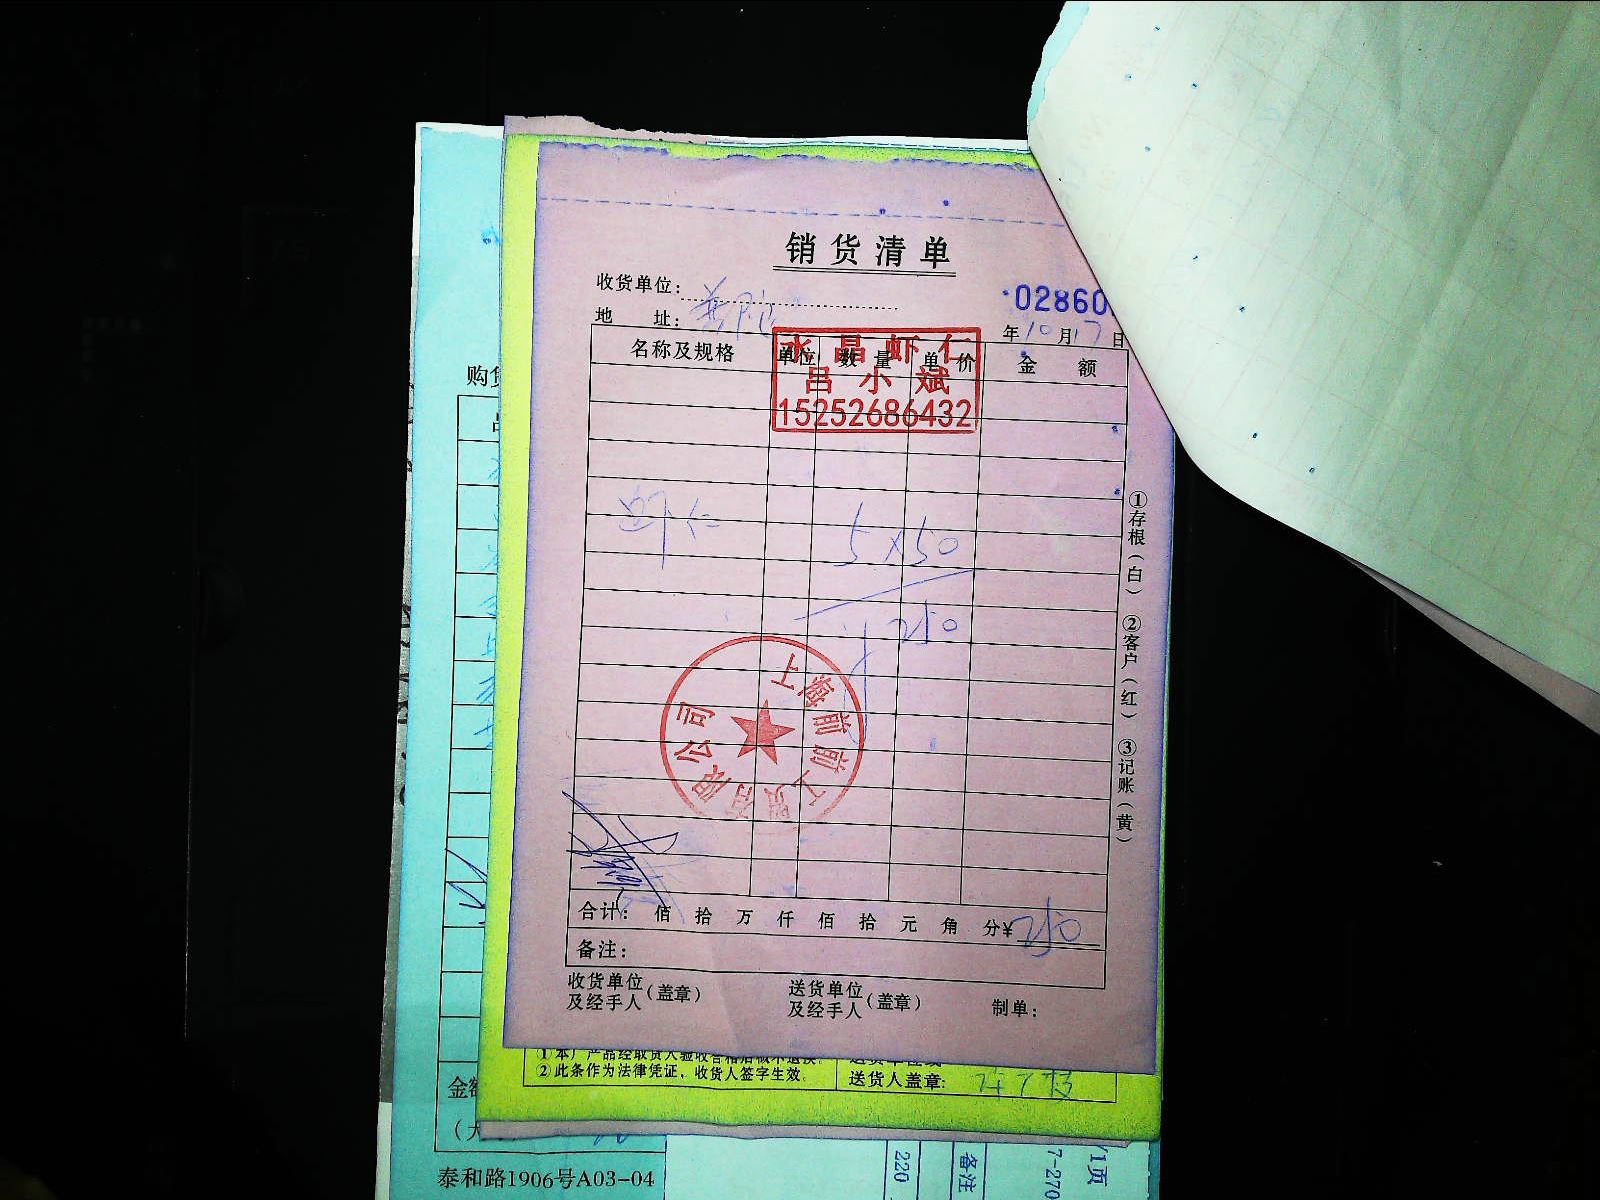 销货清单
收货单位:
02860
地 址:
年10月17日
名称及规格 单位 数量 单价 金额
水晶虾仁
吕小斌
15252686432
虾仁 5×50
250
上海前前工贸有限公司
合计: 佰 拾 万 仟 佰 拾 元 角 分¥250
备注:
收货单位及经手人(盖章) 送货单位及经手人(盖章) 制单:
①存根(白) ②客户(红) ③记账(黄)
购货
②此条作为法律凭证，收货人签字生效。
送货人盖章:
金额
(大
泰和路1906号A03-04
220
备注
7-270
/1页